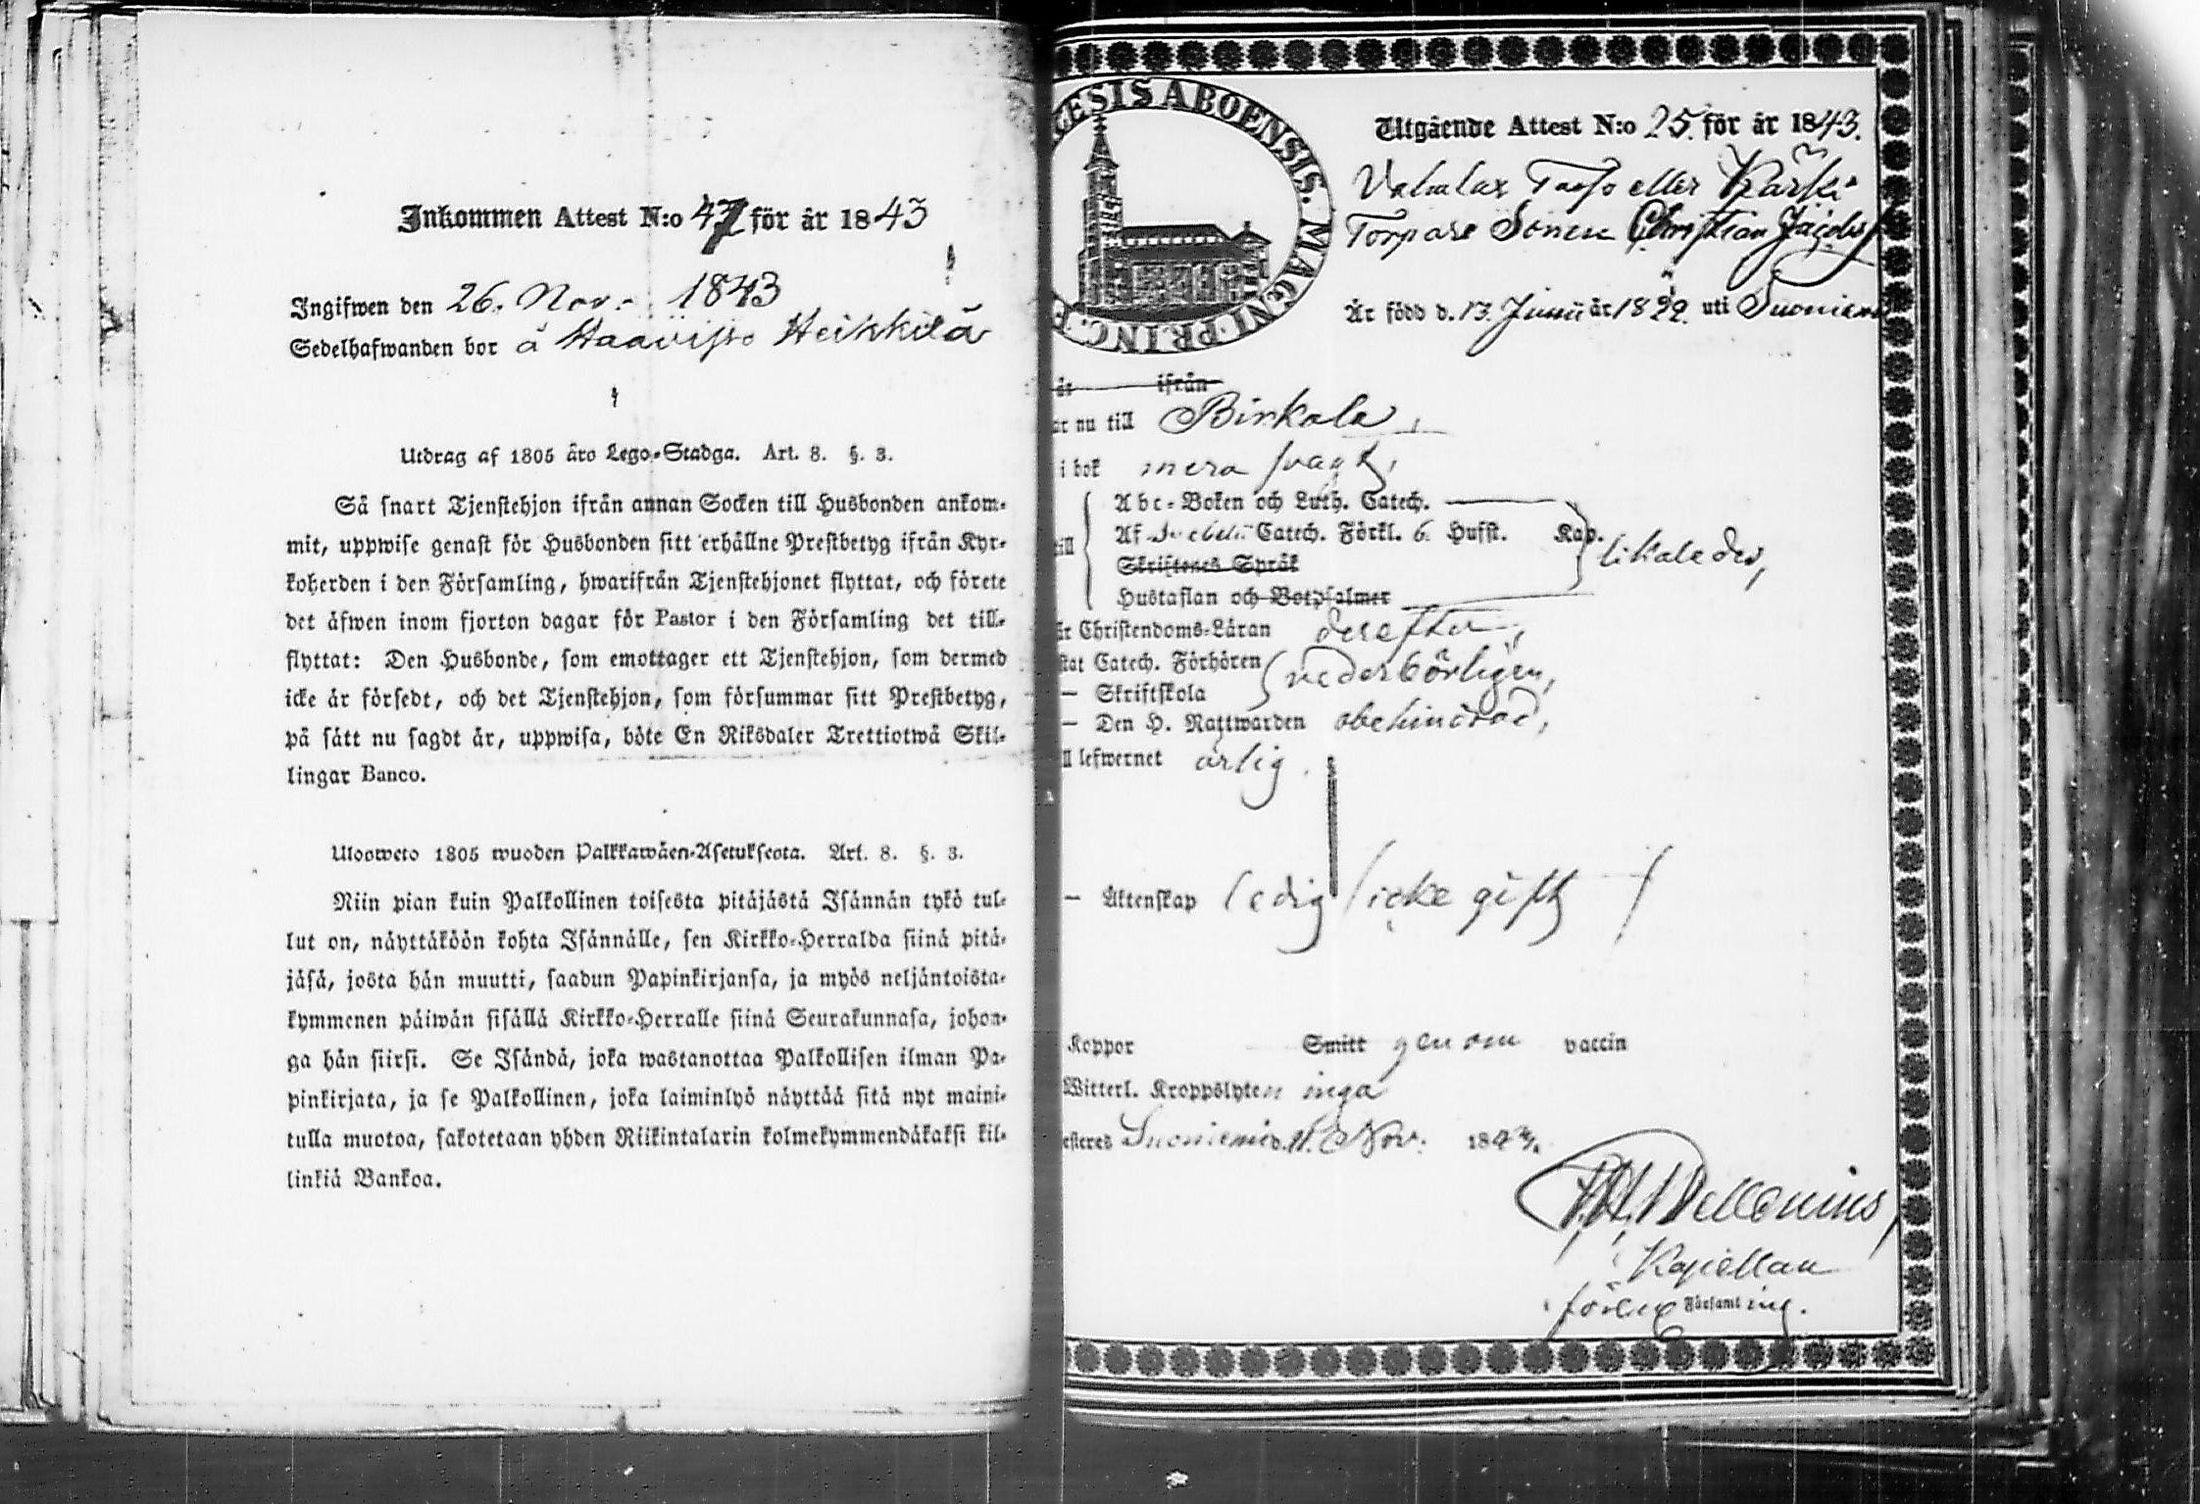 Inkommen Attest N:o 47 för år 1843
Ingifwen den 26. Nov. 1843
Sedelhafwanden bor å Haavisto Heikkilä
Utdrag af 1805 års Lego-Stadga. Art. 8. §. 3.
Så snart Tjenstehjon ifrån annan Socken till Husbonden ankom-
mit, uppwise genast för Husbonden sitt erhållne Prestbetyg ifrån Kyr-
koherden i den Församling, hwarifrån Tjenstehjonet flyttat, och förete
det äfwen inom fjorton dagar för Pastor i den Församling det till-
flyttat: Den Husbonde, som emottager ett Tjenstehjon, som dermed
icke är försedt, och det Tjenstehjon, som försummar sitt Prestbetyg,
på sätt nu sagdt är, uppwisa, böte En Riksdaler Trettiotwå Skil-
lingar Banco.
Ulosweto 1805 wuoden Palkkawäen-Asetuksesta. Art. 8. §. 3.
Niin pian kuin Palkollinen toisesta pitäjästä Isännän tykö tul-
lut on, näyttäköön kohta Isännälle, sen Kirkko-Herralda siinä pitä-
jäsä, josta hän muutti, saadun Papinkirjansa, ja myös neljäntoista-
kymmenen päiwän sisällä Kirkko-Herralle siinä Seurakunnasa, johon-
ga hän siirsi. Se Isändä, joka wastanottaa Palkollisen ilman Pa-
pinkirjata, ja se Palkollinen, joka laiminlyö näyttää sitä nyt maini-
tulla muotoa, sakotetaan yhden Riikintalarin kolmekymmendäkaksi kil-
linkiä Bankoa.
CESIS ABOENSIS. MAGNI. PRINC. F
Utgående Attest N:o 25. för år 1843.
eller Kärki
Torpare Sonen Christian Jacobss
Är född d. 13. Junii år 1822. uti Suoniemi
år ifrån
ar nu till Birkala,
i bok mera svagt,
Abc-Boken och Luth. Catech.
till Af Svebelii Catech. Förkl. 6. Hufst. Kap. likaledes,
Skriftenes Språk
Hustaflan och Botpsalmer
er Christendoms-Läran derefter,
stat Catech. Förhören vederbörligen,
— Skriftskola
— Den H. Nattwarden obehindrad,
ll lefwernet ärlig.
— Äktenskap ledig /icke gift/
Koppor Smitt genom vaccin
Witterl. Kroppslyten inga
esteres Suoniemi d. 11. Nov. 1843.
Kapellan
Församling.